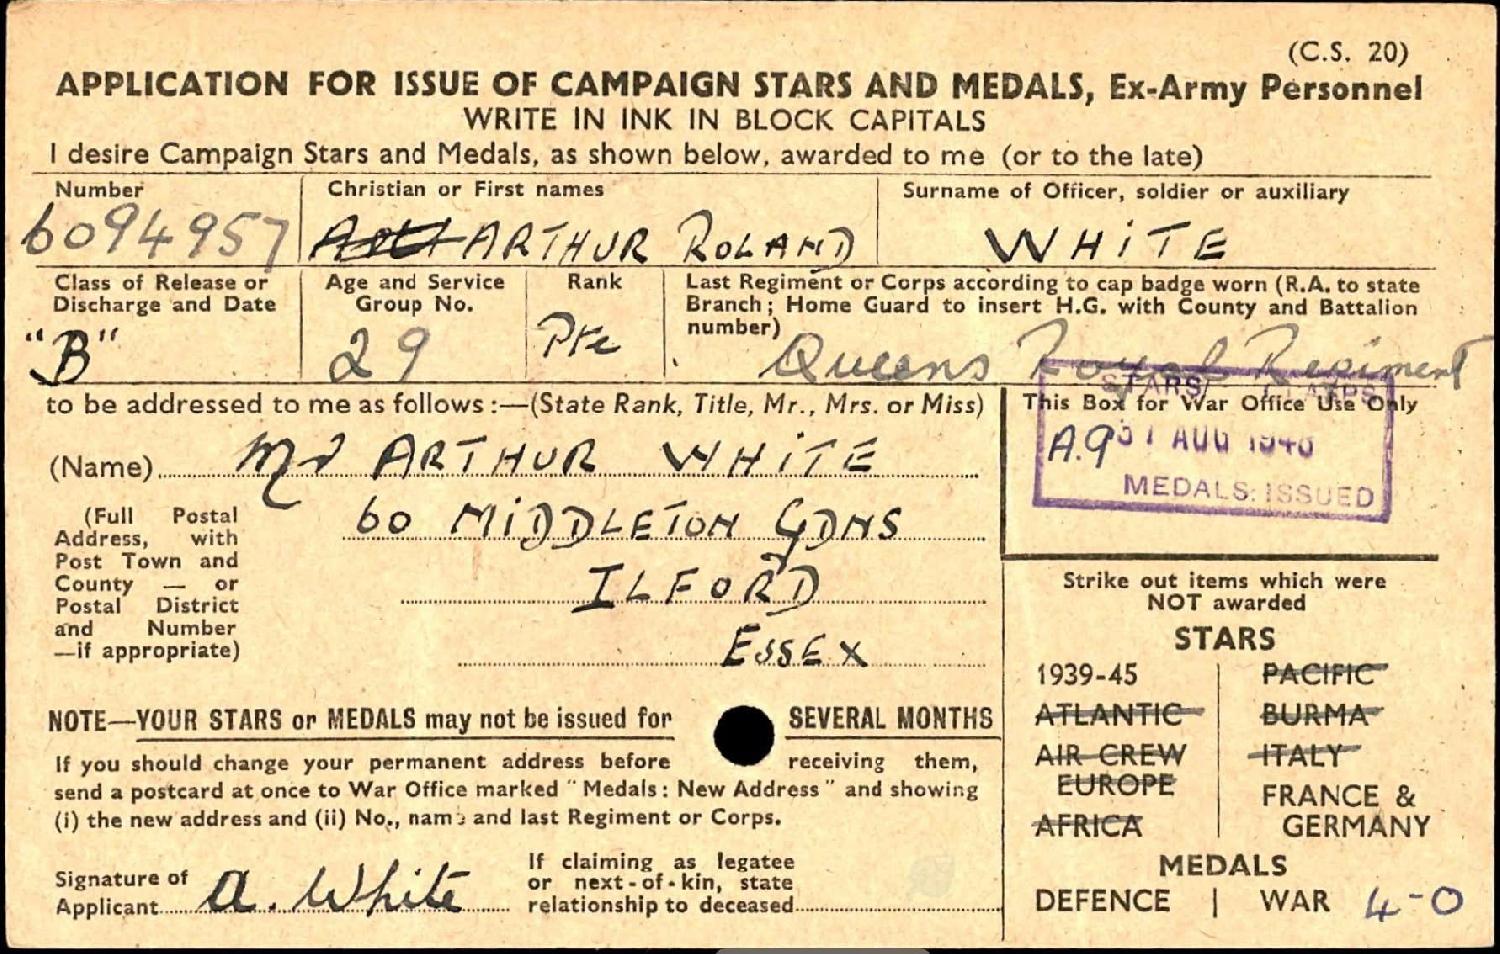 (C.S. 20)
APPLICATION FOR ISSUE OF CAMPAIGN STARS AND MEDALS, Ex-Army Personnel
WRITE IN INK IN BLOCK CAPITALS
I desire Campaign Stars and Medals, as shown below, awarded to me (or to the late)
Number
6094957
Christian or First names
ARTHUR ROLAND
Surname of Officer, soldier or auxiliary
WHITE
Class of Release or
Discharge and Date
"B"
Age and Service
Group No.
29
Rank
Pte
Last Regiment or Corps according to cap badge worn (R.A. to state
Branch; Home Guard to insert H.G. with County and Battalion
number)
Queens Royal Regiment
to be addressed to me as follows :—(State Rank, Title, Mr., Mrs. or Miss)
(Name) Mr ARTHUR WHITE
(Full Postal
Address, with
Post Town and
County — or
Postal District
and Number
—if appropriate)
60 MIDDLETON GDNS
ILFORD
ESSEX
This Box for War Office Use Only
STARS/
A.9
31 AUG
MEDALS: ISSUED
NOTE—YOUR STARS or MEDALS may not be issued for SEVERAL MONTHS
If you should change your permanent address before receiving them,
send a postcard at once to War Office marked "Medals: New Address" and showing
(i) the new address and (ii) No., name and last Regiment or Corps.
Signature of
Applicant A. White
If claiming as legatee
or next-of-kin, state
relationship to deceased
Strike out items which were
NOT awarded
STARS
1939-45
ATLANTIC
AIR CREW
EUROPE
AFRICA
PACIFIC
BURMA
ITALY
FRANCE &
GERMANY
MEDALS
DEFENCE | WAR 4-0